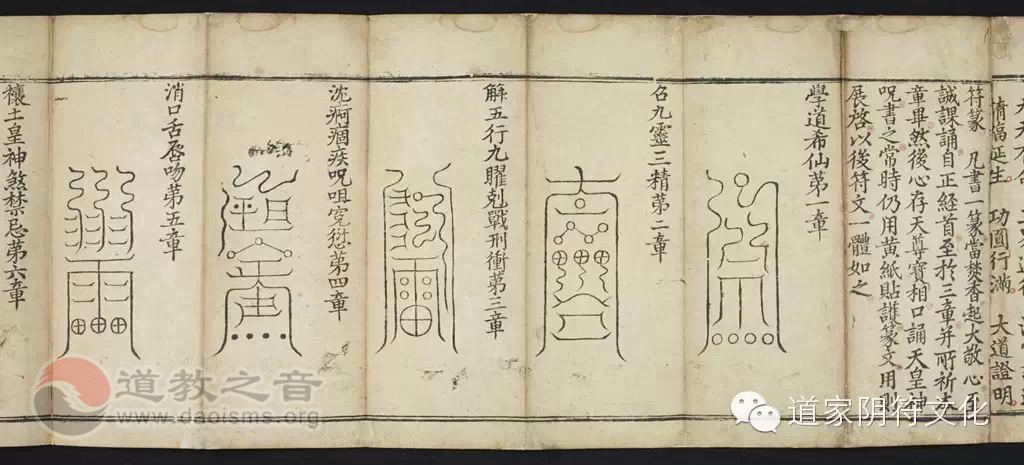 情福延生 功圓行滿 大道證明
符篆 凡書一篆當焚香起大敬心至
誠課誦自正經首至於三章并所祈
章畢然後心存天尊寶相口誦天皇神
呪書之常時仍用黃紙貼護篆文用則
展啓以後符文一體如之
學道希仙第一章
召九靈三精第二章
解五行九曜剋戰刑衝第三章
沈痾痼疾呪咀寃愆第四章
消口舌唇吻第五章
禳土皇神煞禁忌第六章
道教之音
www.daoisms.org
道家阴符文化